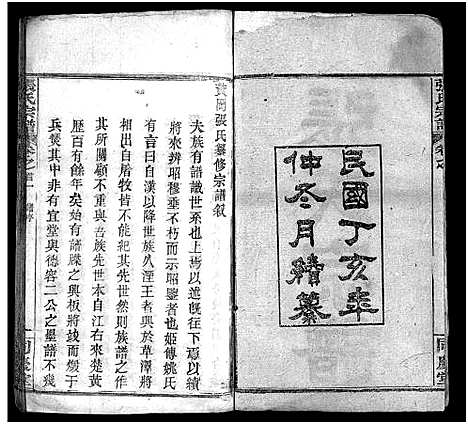 張氏宗譜
民國丁亥年
仲冬月續纂
黃岡張氏纂修宗譜敘
夫族有譜譜識世系也上以述旣往下焉以續
將來辨昭穆垂不朽而示昭鑒者也姬傳姚氏
有言曰自漢以降世族久湮王者興於草澤將
相出自屠牧皆不能紀其先世然則族譜之作
其所關顧不重與吾族先世本自江右來楚黃
歷百有餘年矣始有譜牒之興板將竣而燬于
兵燹其中非有宜堂與德容二公之墨譜不幾
張氏宗譜
卷之首一